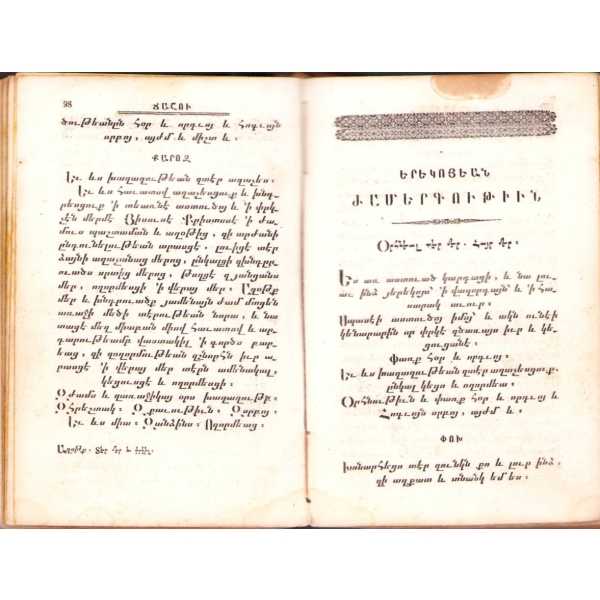 98
ՃԱՇՈՒ
ծութեանըն Հօր և որդւոյ և Հոգւոյն
սրբոյ, այժմ և միշտ և։
ՔԱՐՈԶ
Եւ ևս խաղաղութեան զտէր աղաչես։
Եւ ևս հաւատով աղաչեսցուք և խնդ֊
րեսցուք 'ի տեառնէ աստուծոյ և 'ի փրկ֊
չէն մերմէ Յիսուսէ Քրիստոսէ 'ի ժա֊
մուս պաշտաման և աղօթից, զի արժանի
ընդունելութեան արասցէ, լուիցէ տէր
ձայնի աղաչանաց մերոց, ընկալցի զխնդր֊
ուածս սրտից մերոց, թողցէ զյանցանս
մեր, ողորմեսցի 'ի վերայ մեր։ Աղօթք
մեր և խնդրուածք յամենայն ժամ մտցեն
առաջի մեծի տէրութեան նորա, և նա
տացէ մեզ միաբան միով հաւատով և ար֊
դարութեամբ վաստակիլ 'ի գործս բար֊
եաց, զի զողորմութեան զշնորհն իւր ա֊
րասցէ 'ի վերայ մեր տէրն ամենակալ,
կեցուսցէ և ողորմեսցի։
Զժամս և զառաջիկայ օրս խաղաղութբ։
Զհրեշտակ։ Զքաւութիւն։ Զսրբոյ։
Եւ ևս միա։ Զանձինս։ Ողորմեաց։
Աղօթք.
ԵՐԵԿՈՅԵԱՆ
ԺԱՄԵՐԳՈՒԹԻՒՆ
Ես առ աստուած կարդացի, և նա լու֊
աւ ինձ յերեկոյս՝ 'ի վաղորդայն՝ և 'ի հա֊
սարակ աւուր։
Սպասէի աստուծոյ իմոյ՝ և ակն ունէի
կենարարին որ փրկէ զծառայս իւր և կե֊
ցուցանէ։
Փառք Հօր և որդւոյ։
Եւ ևս խաղաղութեան զտէր աղաչեսցուք,
ընկալ կեցո և ողորմեա։
Օրհնութիւն և փառք Հօր և որդւոյ և
Հոգւոյն սրբոյ, այժմ և։
ՓՈԽ
Խոնարհեցո տէր զունկն քո և լուր ինձ,
զի աղքատ և տնանկ եմ ես։